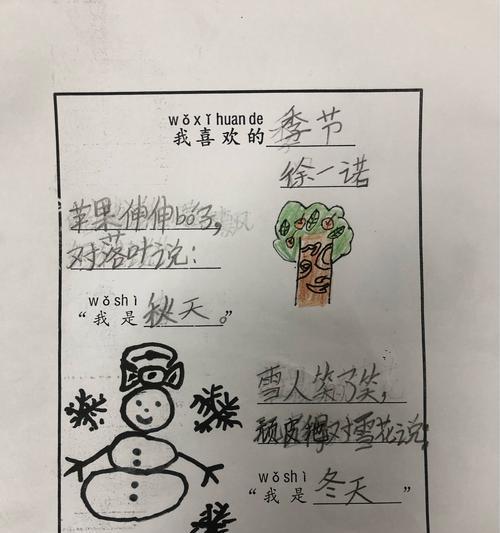 wǒ xǐ huan de
我喜欢的季节
徐一诺
苹果伸伸bó子，
对落叶说：
wǒ shì
“我是秋天。”
雪人笑了笑，
顽皮得对雪花说：
wǒ shì
“我是冬天”